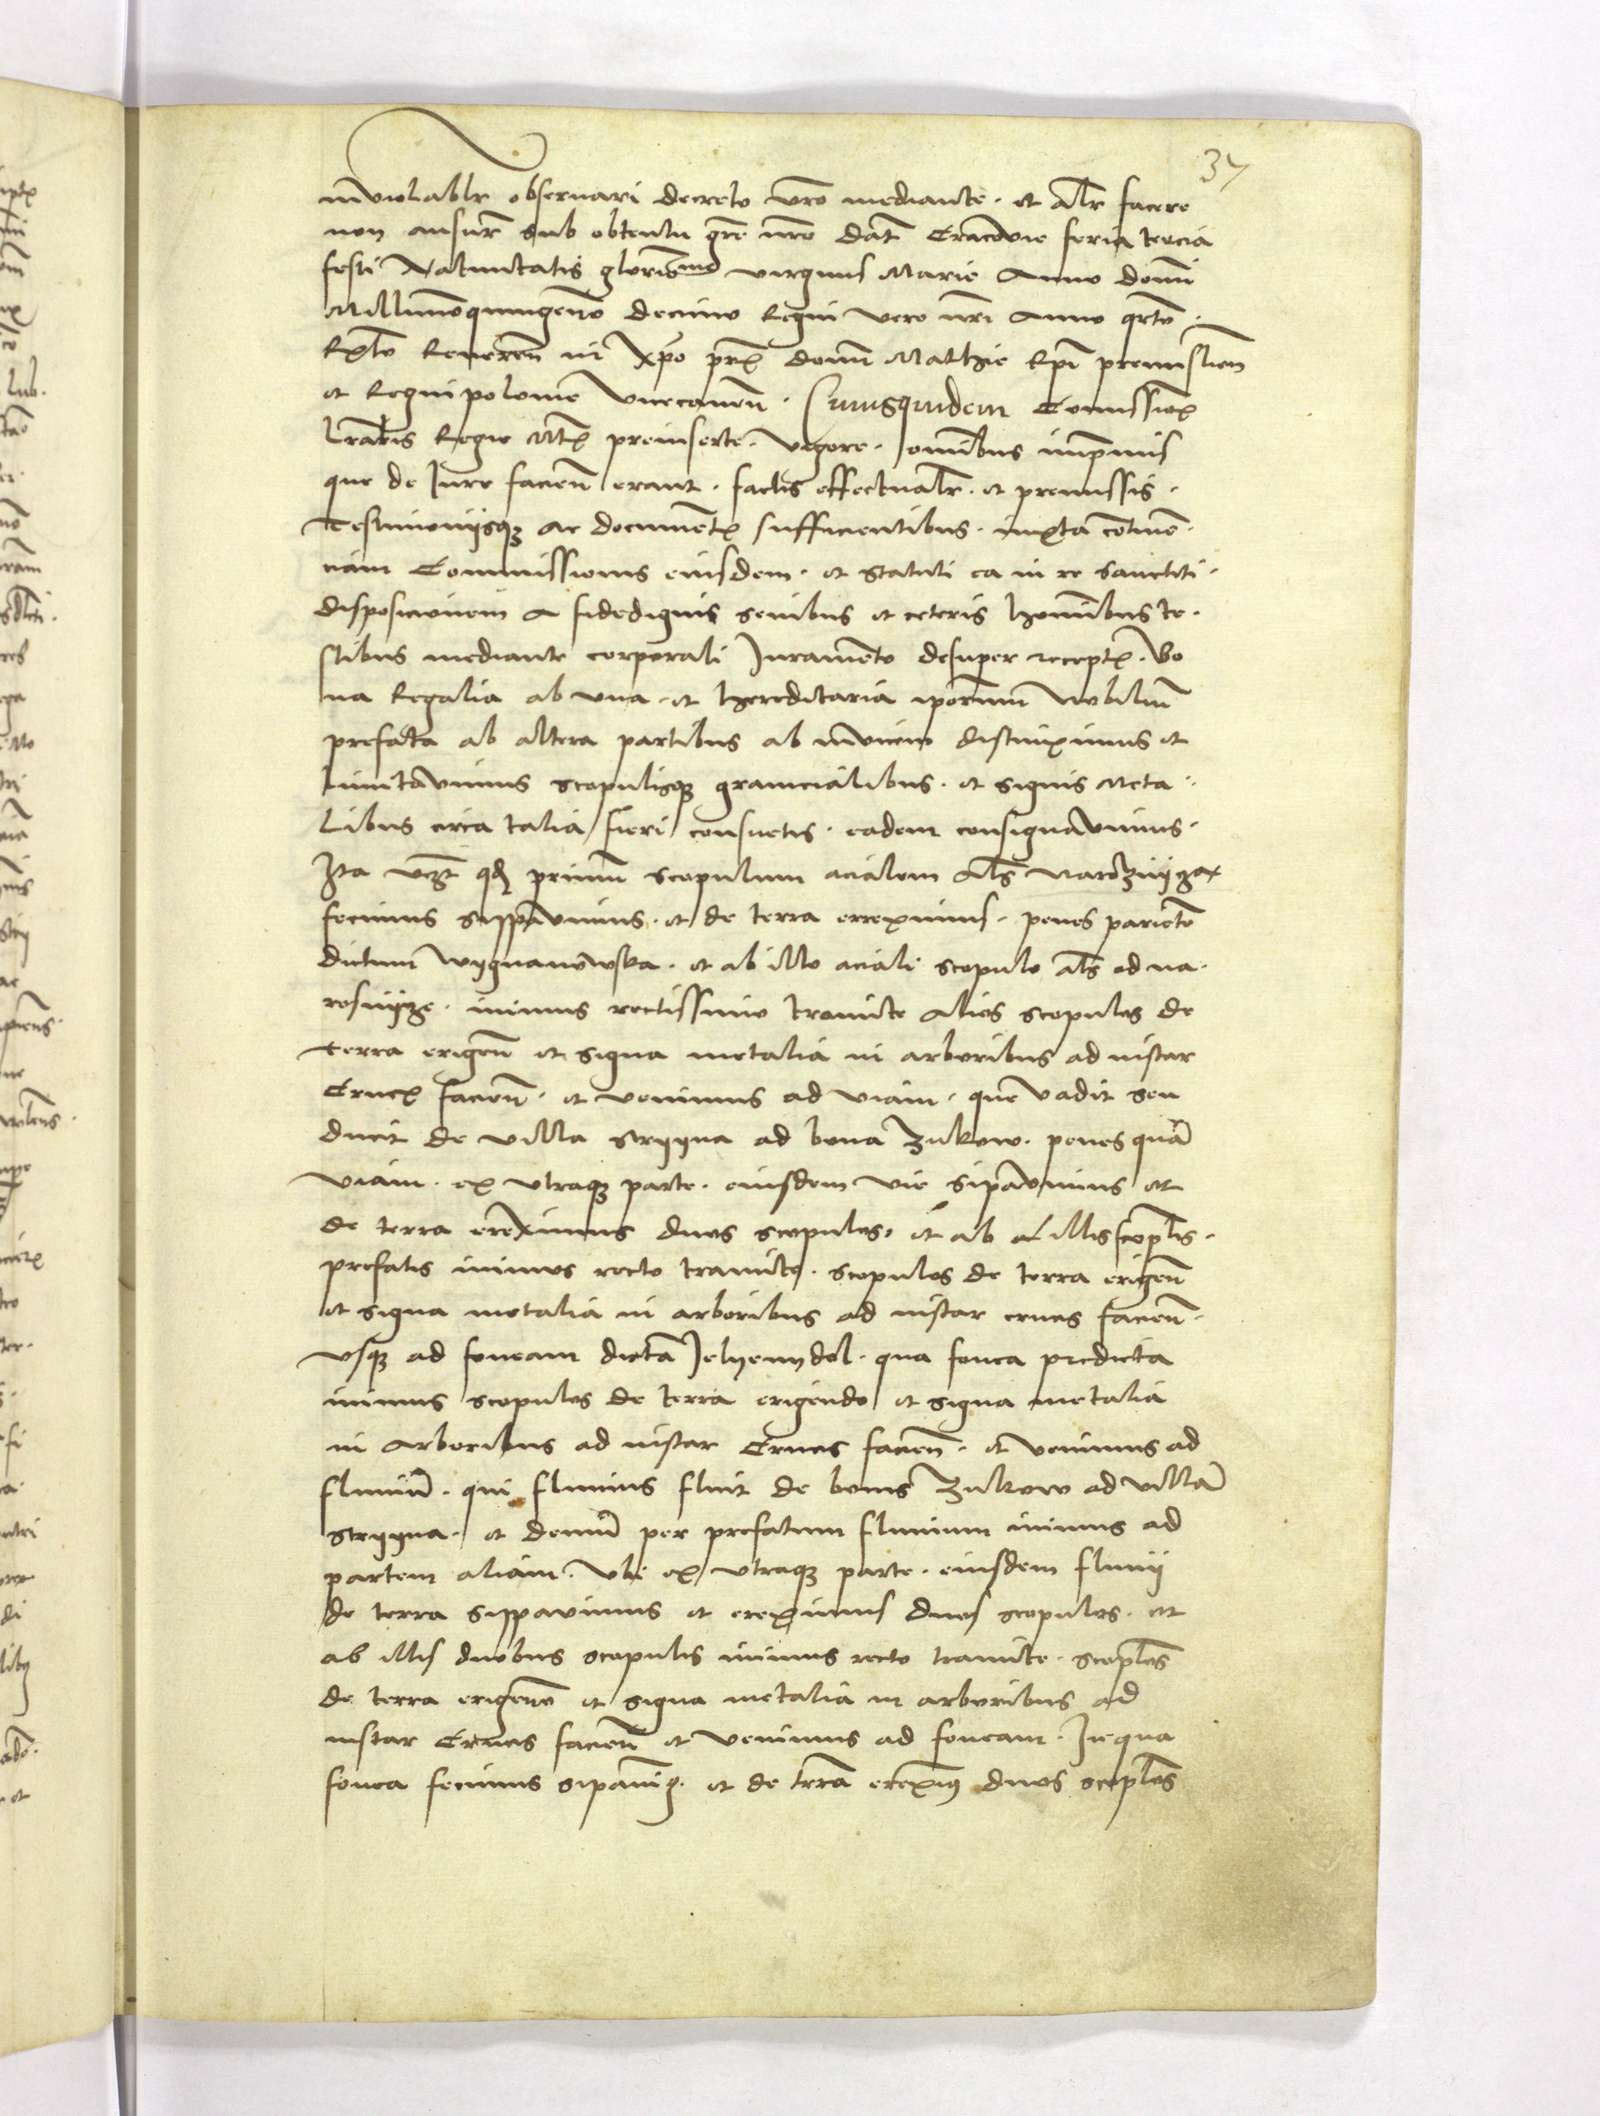 37
inviolablr observari decreto vro mediante · et alr facere
non ausur sub obtentu gre nre Dat Cracovie feria tercia
festi Natiuitatis gloriosime virginis Marie Anno domi
Millimoquingeno decimo Regni vero nri Anno qrto ·
Rlto Reueren in xpo prs domi Mathie Epi premislien
et Regni polonie vicecancn · Cuiusquidem Comission
lraris Regie Mts preinserte · vigore · omibus inprimis
que de Iure facien erant · factis effectualr · et premissis ·
Testimoniisqz ac documets sufficientibus · iuxta cotinen
ciam Commissionis eiusdem · et statuti ea in re sanctiti ·
disposicionem A fidedignis senibus et ceteris hominibus te ·
stibus mediante corporali Iuramento desuper recepts · Bo
na Regalia ab vna · et hereditaria iporum Nobiliu
prefata ab altera partibus ab invicem distinximus et
limitavimus scopulisqz granicialibus · et signis Meta ·
Libus circa talia fieri consuetis · eadem consignavimus ·
Ita vzt qd primu scopulum acialem als narozniiza
fecimus sippavimus · et de terra erreximus · penes pariete
dictum wygnanowska · et ab illo aciali scopulo als od na ·
rosniize · iuimus rectissimo tramite Alios scopulos de
terra erigen et signa metalia in arboribus ad instar
Crucs facien · et venimus ad viam · que vadit seu
ducit de villa Stryyna ad bona Zukow · penes qua
viam · ex vtraqz parte · eiusdem vie sipavimus et
de terra ereximus duos scopulos · et ab illis scoplis ·
prefatis iuimus recto tramite · scopulos de terra erigen
et signa metalia in arboribus ad instar crucis facien ·
vsqz ad foueam dicta Jelyenydol · qua fouea predicta
iuimus scopulos de terra erigendo et signa metalia
in Arboribus ad instar Crucis facien · et venimus ad
fluuiu · qui fluuius fluit de bonis Zukow ad villa
Stryyna · et demu per prefatum fluuium iuimus ad
partem aliam · vbi ex vtraqz parte · eiusdem fluuii
de terra sippavimus et ereximus duos scopulos · et
ab illis duobus scopulis iuimus recto tramite · scoplos
de terra erigeno et signa metalia in arboribus ad
instar Crucis facien et venimus ad foueam · In qua
fouea fecimus sipavi9 · et de trra erexim9 duos scoplos